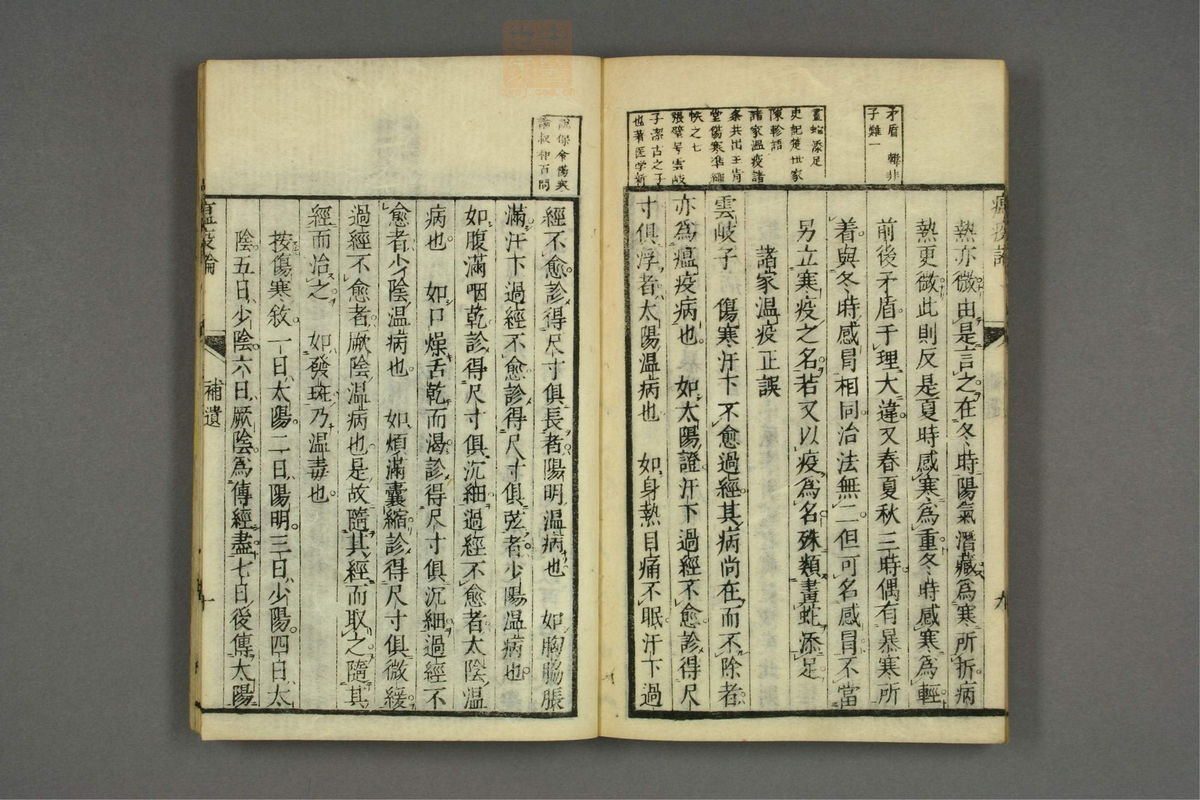 矛盾 韓非
子難一
畫蛇添足
史記楚世家
陳軫語
諸家溫疫諸
条共出王肯
堂傷寒準繩
帙之七
張璧号雲岐
子潔古之子
也著医学新
熱亦微由是言之在冬時陽氣潛藏為寒所折病
熱更微此則反是夏時感寒為重冬時感寒為輕
前後矛盾于理大違又春夏秋三時偶有暴寒所
着與冬時感冒相同治法無二但可名感冒不當
另立寒疫之名若又以疫為名殊類畫蛇添足
諸家温疫正誤
雲岐子 傷寒汗下不愈過經其病尚在而不除者
亦為瘟疫病也 如太陽證汗下過經不愈診得尺
寸俱浮者太陽温病也 如身熱目痛不眠汗下過
說保命傷寒
論叔和百問
經不愈診得尺寸俱長者陽明温病也 如胸脇脹
滿汗下過經不愈診得尺寸俱弦者少陽温病也
如腹滿咽乾診得尺寸俱沉細過經不愈者太陰温
病也 如口燥舌乾而渴診得尺寸俱沉細過經不
愈者少陰温病也 如煩滿囊縮診得尺寸俱微緩
過經不愈者厥陰温病也是故隨其經而取之隨其
經而治之 如發斑乃温毒也
按傷寒敘一日太陽二日陽明三日少陽四日太
陰五日少陰六日厥陰為傳經盡七日後傳太陽
瘟疫論
補遺
十
九